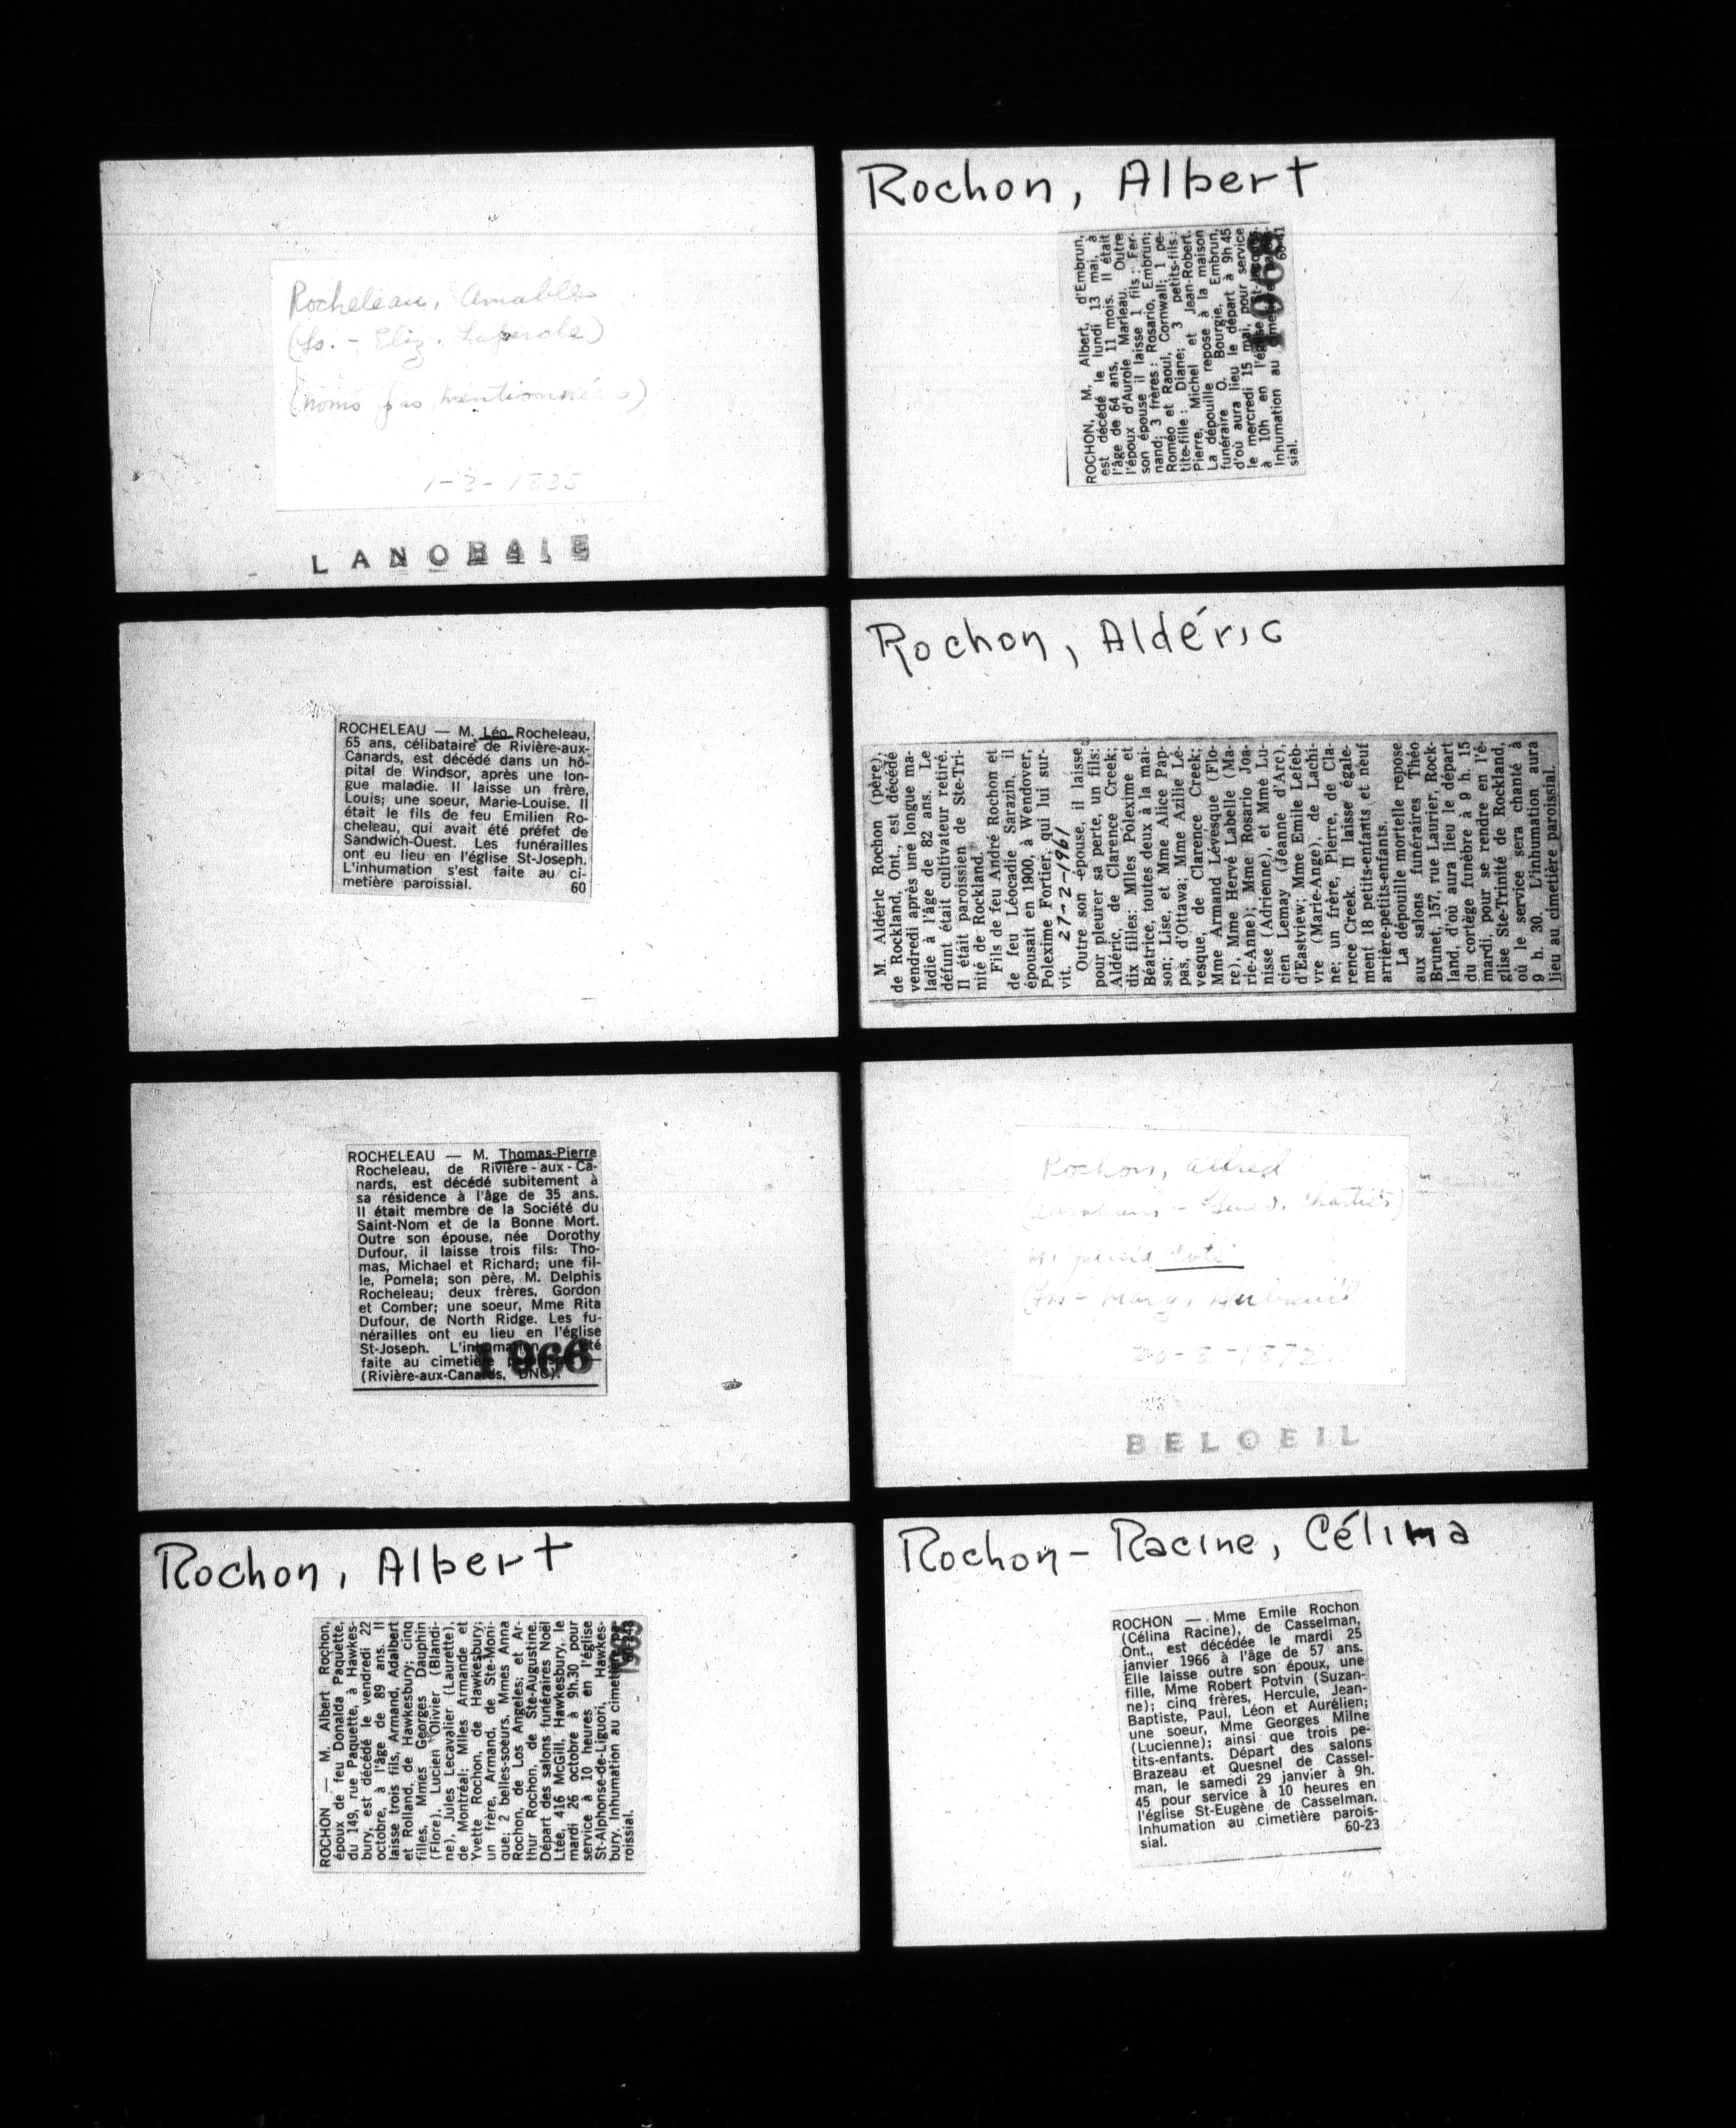 Rocheleau, Amable
(Ls. - Eliz.
(noms pas mentionnés)
LANORAIE
ROCHELEAU — M. Léo Rocheleau,
65 ans, célibataire de Rivière-aux-
Canards, est décédé dans un hô-
pital de Windsor, après une lon-
gue maladie. Il laisse un frère,
Louis; une soeur, Marie-Louise. Il
était le fils de feu Emilien Ro-
cheleau, qui avait été préfet de
Sandwich-Ouest. Les funérailles
ont eu lieu en l'église St-Joseph.
L'inhumation s'est faite au ci-
metière paroissial. 60
ROCHELEAU — M. Thomas-Pierre
Rocheleau, de Rivière-aux-Ca-
nards, est décédé subitement à
sa résidence à l'âge de 35 ans.
Il était membre de la Société du
Saint-Nom et de la Bonne Mort.
Outre son épouse, née Dorothy
Dufour, il laisse trois fils: Tho-
mas, Michael et Richard; une fil-
le, Pomela; son père, M. Delphis
Rocheleau; deux frères, Gordon
et Comber; une soeur, Mme Rita
Dufour, de North Ridge. Les fu-
nérailles ont eu lieu en l'église
St-Joseph. L'inhumation été
faite au cimetière
(Rivière-aux-Canards, DNC).
1966
Rochon, Albert
ROCHON — M. Albert Rochon,
époux de feu Donalda Paquette,
du 149, rue Paquette, à Hawkes-
bury, est décédé le vendredi 22
octobre, à l'âge de 89 ans. Il
laisse trois fils, Armand, Adalbert
et Rolland, de Hawkesbury; cinq
filles, Mmes Georges Dauphin
(Flore), Lucien Olivier (Blandi-
ne), Jules Lecavalier (Laurette),
de Montréal; Mlles Armande et
Yvette Rochon, de Hawkesbury;
un frère, Armand, de Ste-Moni-
que; 2 belles-soeurs, Mmes Anna
Rochon, de Los Angeles; et Ar-
thur Rochon, de Ste-Augustine.
Départ des salons funéraires Noël
Ltée, 416 McGill, Hawkesbury, le
mardi 26 octobre à 9h.30 pour
service à 10 heures en l'église
St-Alphonse-de-Liguori, Hawkes-
bury. Inhumation au cimetière pa-
roissial.
Rochon, Albert
ROCHON, M. Albert, d'Embrun,
est décédé le lundi 13 mai, à
l'âge de 64 ans, 11 mois. Il était
l'époux d'Aurole Marleau. Outre
son épouse il laisse 1 fils: Fer-
nand; 3 frères: Rosario, Embrun;
Roméo et Raoul, Cornwall; 1 pe-
tite-fille: Diane; 3 petits-fils:
Pierre, Michel et Jean-Robert.
La dépouille repose à la maison
funéraire O. Bourgie, Embrun,
d'où aura lieu le départ à 9h 45
le mercredi 15 mai, pour service
à 10h en l'église
Inhumation au
sial.
1968
Rochon, Aldéric
M. Aldéric Rochon (père),
de Rockland, Ont., est décédé
vendredi après une longue ma-
ladie à l'âge de 82 ans. Le
défunt était cultivateur retiré.
Il était paroissien de Ste-Tri-
nité de Rockland.
Fils de feu André Rochon et
de feu Léocadie Sarazin, il
épousait en 1900, à Wendover,
Polexime Fortier, qui lui sur-
vit. 27-2-1961
Outre son épouse, il laisse
pour pleurer sa perte, un fils:
Aldéric, de Clarence Creek;
dix filles: Mlles Polexime et
Béatrice, toutes deux à la mai-
son; Lise, et Mme Alice Pap-
pas, d'Ottawa; Mme Azilie Lé-
vesque, de Clarence Creek;
Mme Armand Lévesque (Flo-
re), Mme Hervé Labelle (Ma-
rie-Anne); Mme Rosario Joa-
nisse (Adrienne), et Mme Lu-
cien Lemay (Jeanne d'Arc),
d'Eastview; Mme Emile Lefeb-
vre (Marie-Ange), de Lachi-
ne; un frère, Pierre, de Cla-
rence Creek. Il laisse égale-
ment 18 petits-enfants et neuf
arrière-petits-enfants.
La dépouille mortelle repose
aux salons funéraires Théo
Brunet, 157, rue Laurier, Rock-
land, d'où aura lieu le départ
du cortège funèbre à 9 h. 15
mardi, pour se rendre en l'é-
glise Ste-Trinité de Rockland,
où le service sera chanté à
9 h. 30. L'inhumation aura
lieu au cimetière paroissial.
Rochon, Alfred
BELOEIL
Rochon-Racine, Célima
ROCHON — Mme Emile Rochon
(Célina Racine), de Casselman,
Ont., est décédée le mardi 25
janvier 1966 à l'âge de 57 ans.
Elle laisse outre son époux, une
fille, Mme Robert Potvin (Suzan-
ne); cinq frères, Hercule, Jean-
Baptiste, Paul, Léon et Aurélien;
une soeur, Mme Georges Milne
(Lucienne); ainsi que trois pe-
tits-enfants. Départ des salons
Brazeau et Quesnel de Cassel-
man, le samedi 29 janvier à 9h.
45 pour service à 10 heures en
l'église St-Eugène de Casselman.
Inhumation au cimetière parois-
sial. 60-23